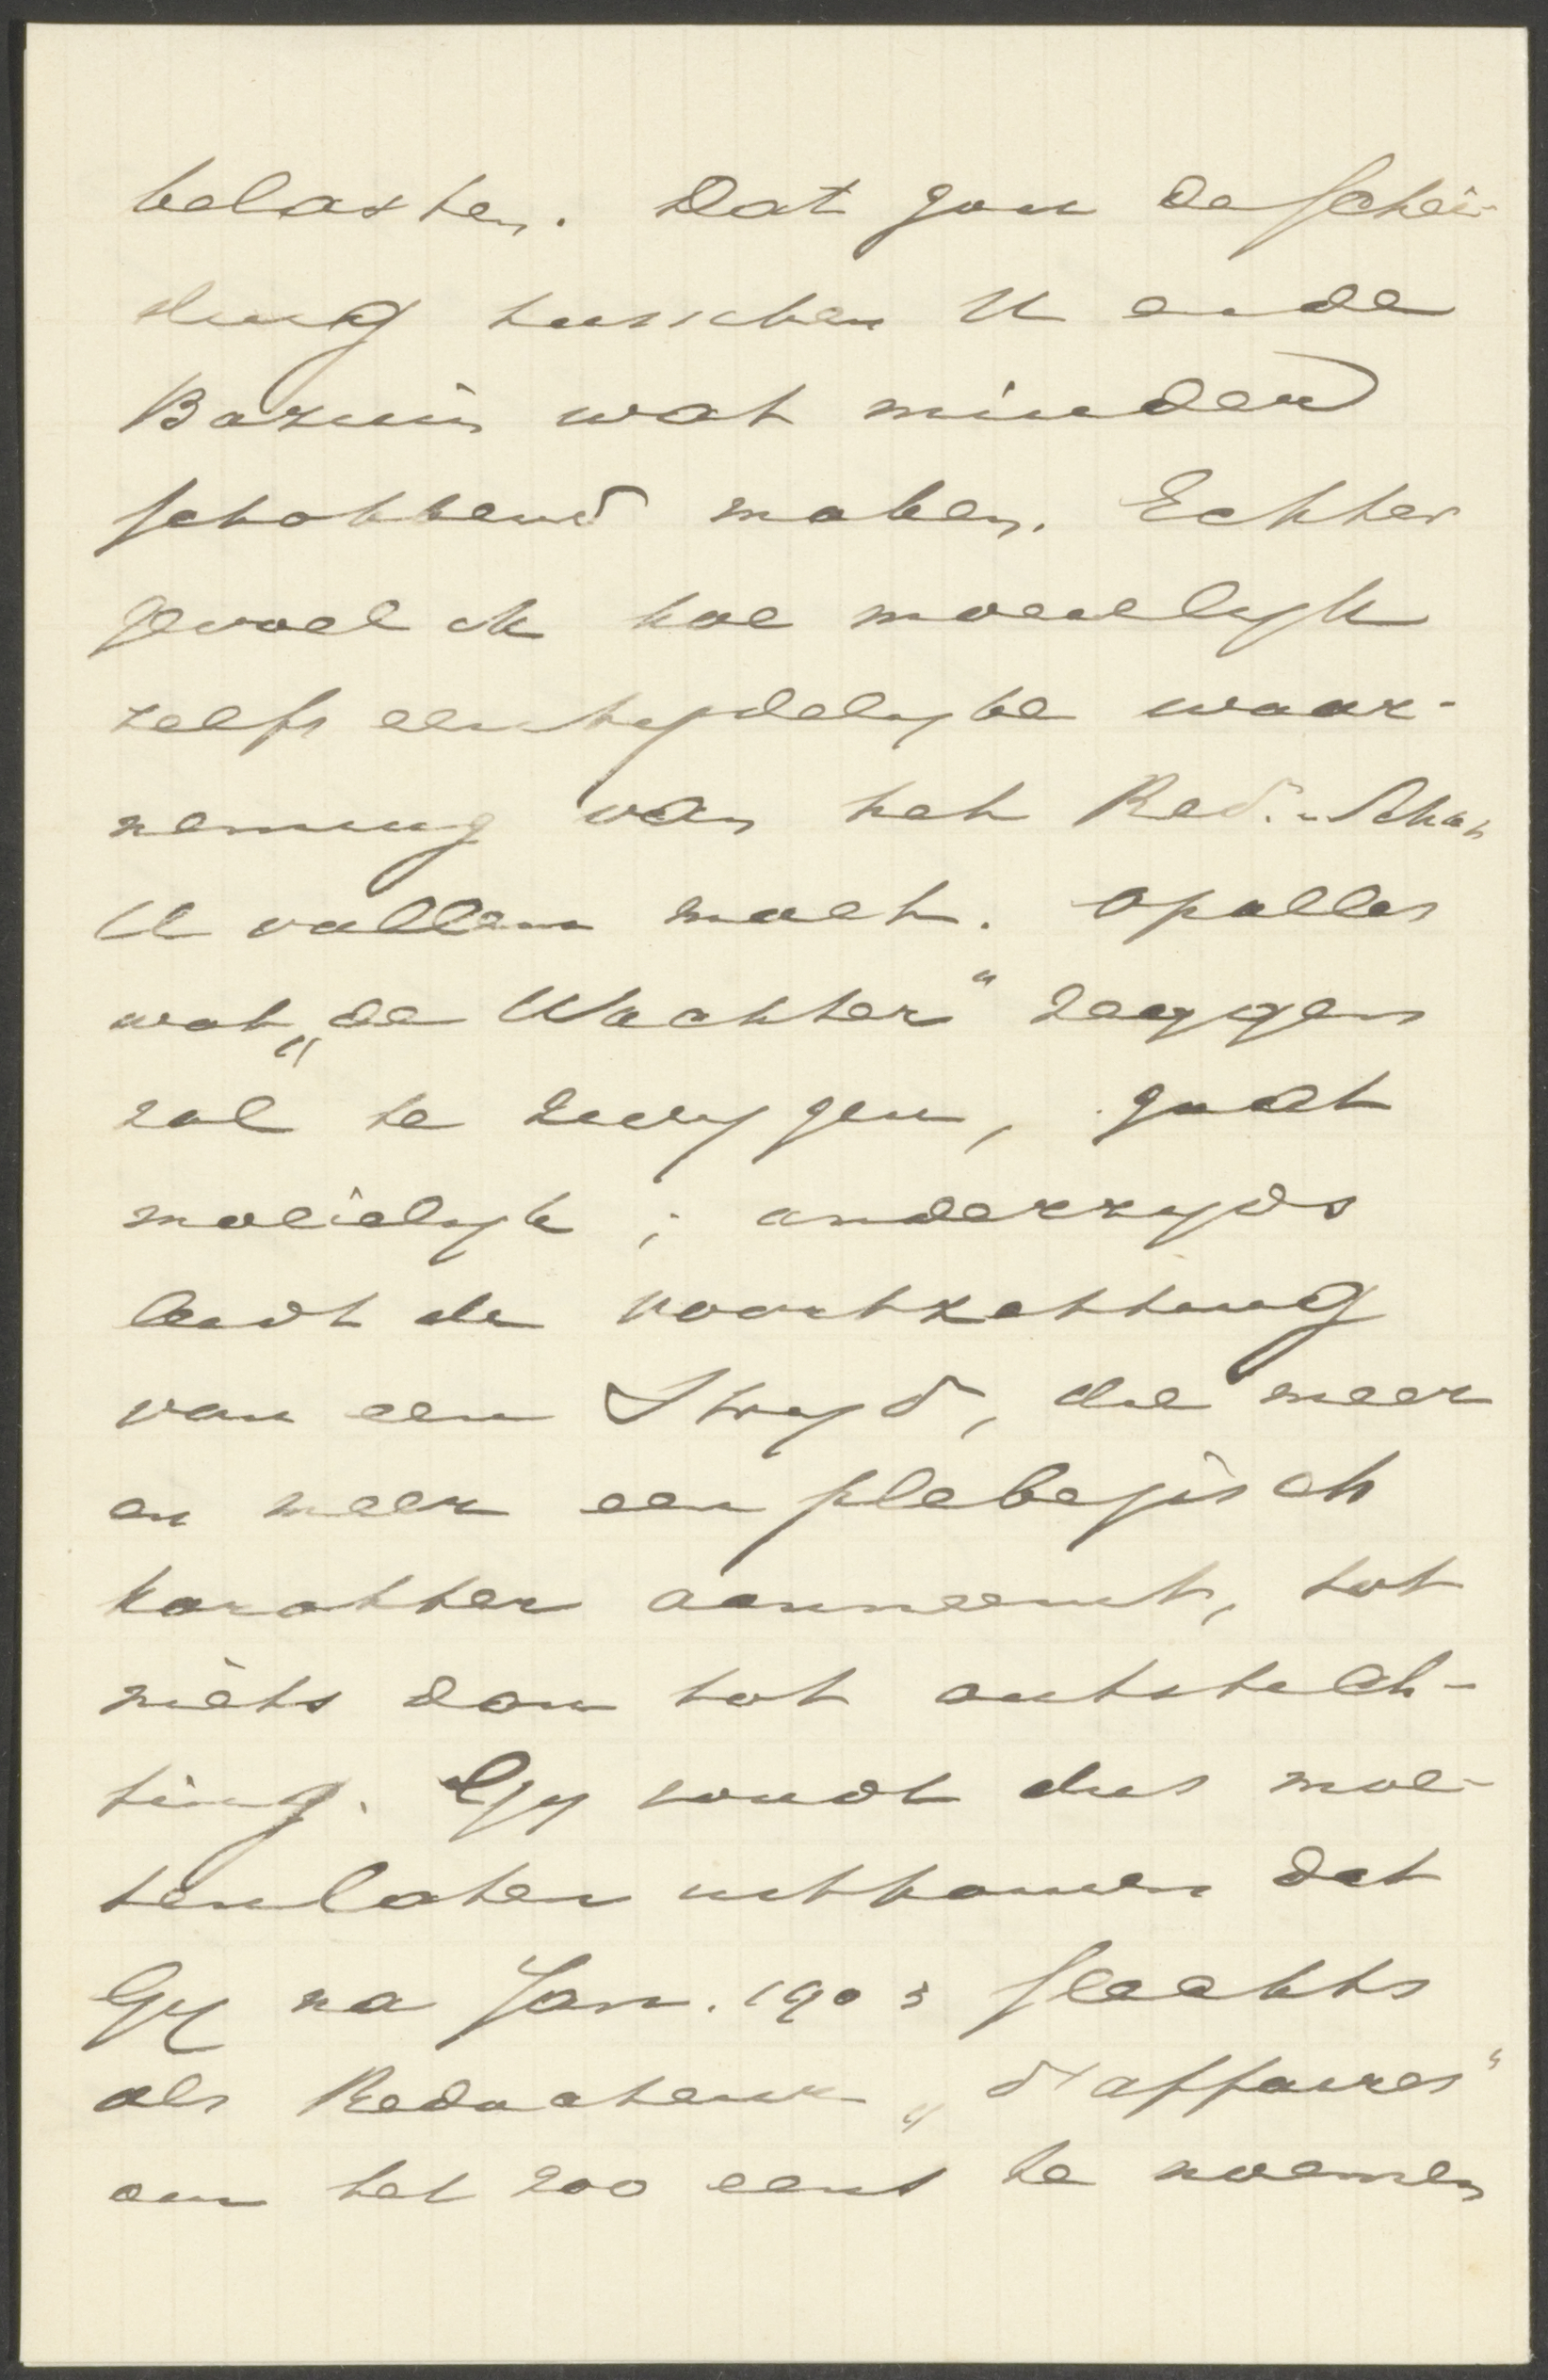 belasten. Dat zou de schei-
ding tusschen U en de
Bazuin wat minder
schokkend maken. Echter
gevoel ik hoe moeielijk
zelfs een tijdelijke waar-
neming van het Red.-schap
U vallen moet. Op alles
wat „de Wachter" zeggen
zal te zwijgen, gaat
moeielijk; anderzijds
leidt de voortzetting
van een Strijd, die meer
en meer een plebejisch
karakter aanneemt, tot
niets dan tot ontstich-
ting. Gij zoudt dus moe-
ten laten uitkomen dat
Gij na Jan. 1903 slechts
als Redacteur „d'affaires"
om het zoo eens te noemen